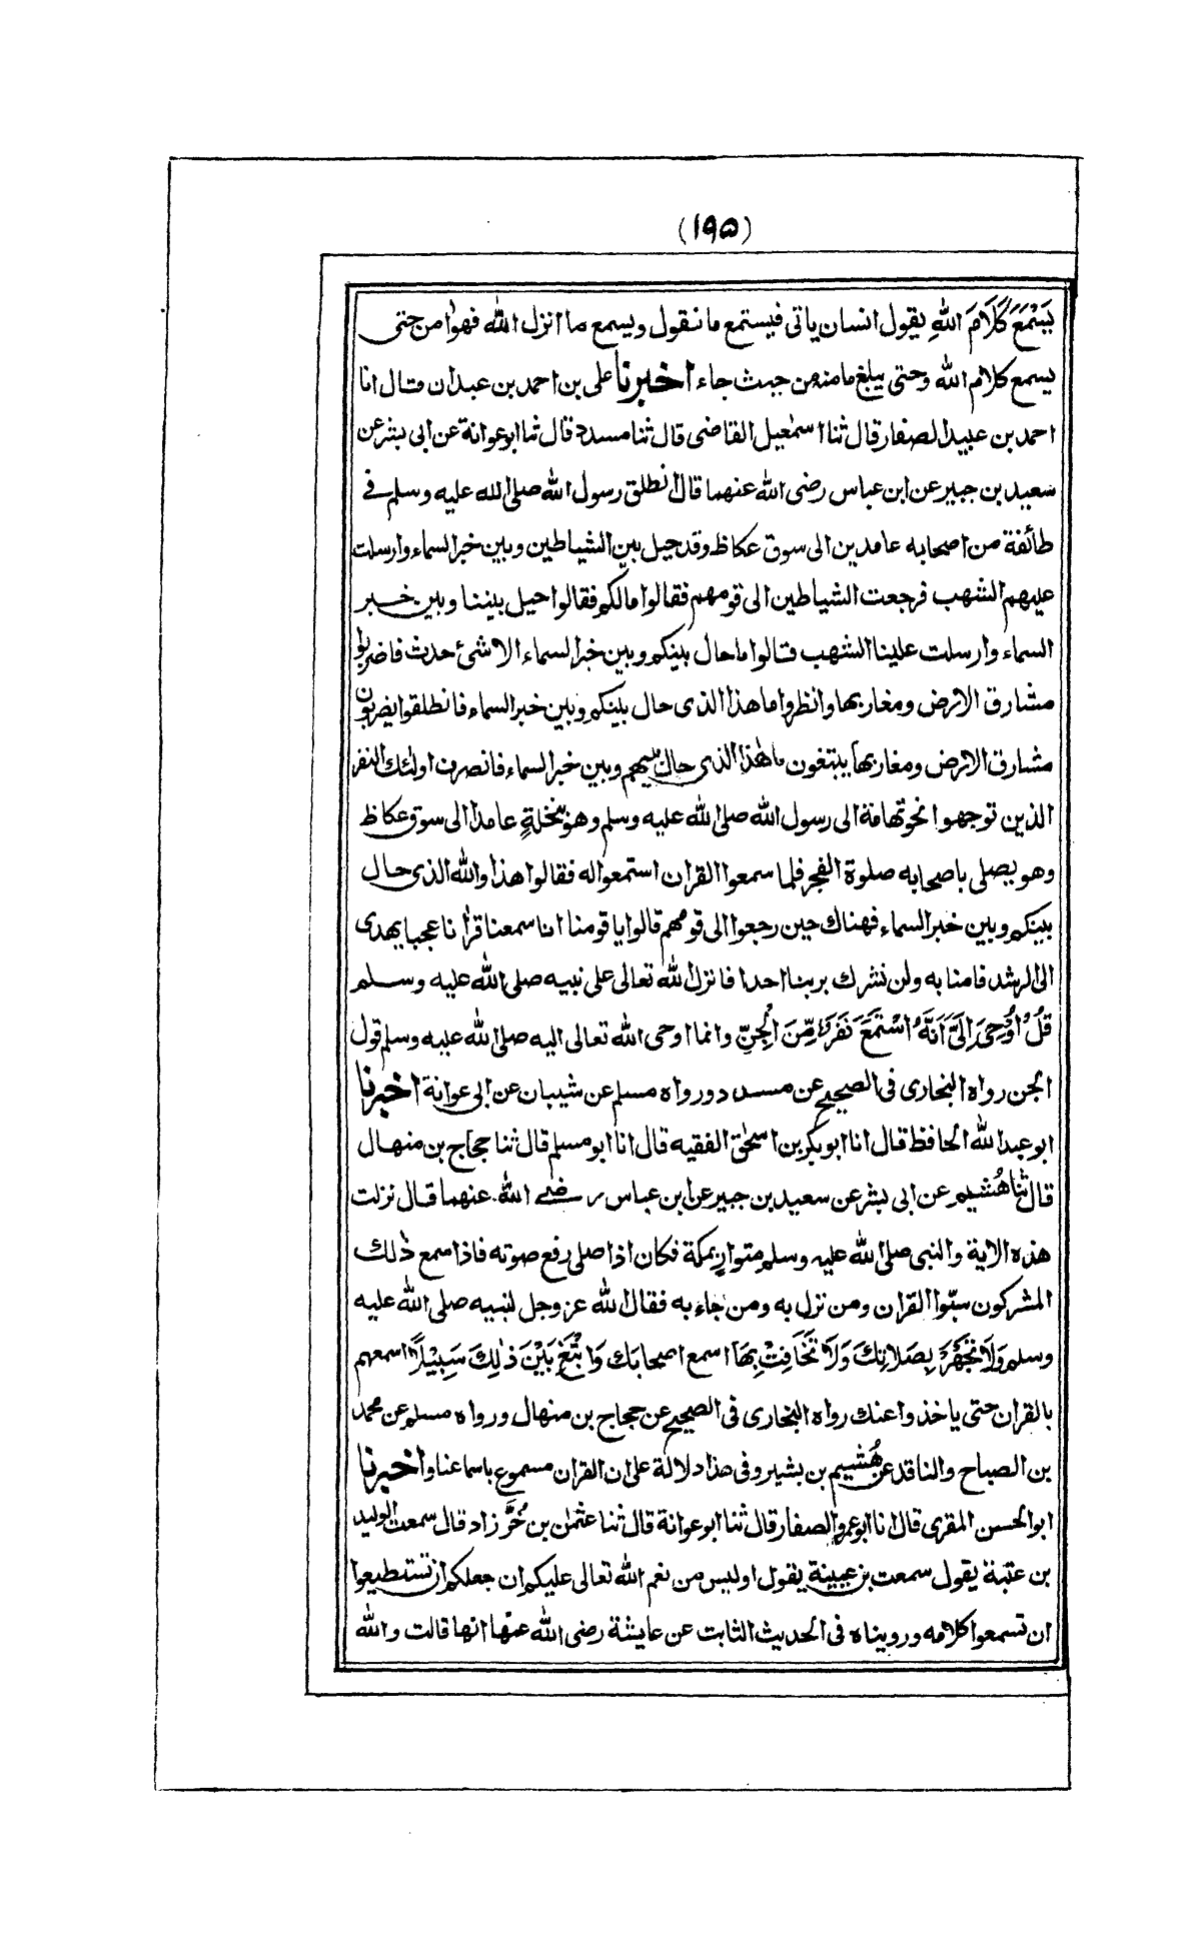 (١٩٥)
يَسْمَعَ كَلَامَ اللهِ يقول انسان ياتى فيستمع ما نقول ويسمع ما انزل الله فهو امن حتى
يسمع كلام الله وحتى يبلغ مامنه من حيث جاء اخبرنا على بن احمد بن عبدان قال انا
احمد بن عبيد الصفار قال ثنا اسمٰعيل القاضى قال ثنا مسدد قال ثنا ابو عوانة عن ابى بشر عن
سعيد بن جبير عن ابن عباس رضى الله عنهما قال انطلق رسول الله صلى الله عليه وسلم فے
طائفة من اصحابه عامدين الى سوق عكاظ وقد حيل بين الشياطين وبين خبر السماء وارسلت
عليهم الشهب فرجعت الشياطين الى قومهم فقالوا مالكم فقالوا حيل بيننا وبين خبر
السماء وارسلت علينا الشهب قالوا ما حال بينكم وبين خبر السماء الا شئ حدث فاضربوا
مشارق الارض ومغاربها وانظروا ما هذا الذى حال بينكم وبين خبر السماء فانطلقوا يضربون
مشارق الارض ومغاربها يبتغون ما هٰذا الذى حال بينهم وبين خبر السماء فانصرف اولئك النفر
الذين توجهوا نحو تهامة الى رسول الله صلى الله عليه وسلم وهو بنخلةٍ عامدا الى سوق عكاظ
وهو يصلى باصحابه صلوة الفجر فلما سمعوا القران استمعوا له فقالوا هذا والله الذى حال
بينكم وبين خبر السماء فهناك حين رجعوا الى قومهم قالوا يا قومنا انا سمعنا قراٰنا عجبا يهدى
الى الرشد فامنا به ولن نشرك بربنا احدا فانزل الله تعالى على نبيه صلى الله عليه وسلم
قُلْ اُوْحِىَ اِلَىَّ اَنَّهُ اسْتَمَعَ نَفَرٌ مِّنَ الْجِنِّ وانما اوحى الله تعالى اليه صلى الله عليه وسلم قول
الجن رواه البخارى فى الصحيح عن مسدد ورواه مسلم عن شيبان عن ابى عوانة اخبرنا
ابو عبد الله الحافظ قال انا ابو بكر بن اسحٰق الفقيه قال انا ابو مسلم قال ثنا حجاج بن منهال
قال ثنا هُشيم عن ابى بشر عن سعيد بن جبير عن ابن عباس رضے الله عنهما قال نزلت
هذه الاية والنبى صلى الله عليه وسلم متوار بمكة فكان اذا صلى رفع صوته فاذا سمع ذٰلك
المشركون سبّوا القران ومن نزل به ومن جاء به فقال الله عز وجل لنبيه صلى الله عليه
وسلم وَلَا تَجْهَرْ بِصَلَاتِكَ وَلَا تُخَافِتْ بِهَا اسمع اصحابك وَابْتَغِ بَيْنَ ذٰلِكَ سَبِيْلًا اسمعهم
بالقران حتى ياخذوا عنك رواه البخارى فى الصحيح عن حجاج بن منهال ورواه مسلم عن محمد
بن الصباح والناقد عن هُشيم بن بشير وفى هذا دلالة على ان القران مسموع باسماعنا واخبرنا
ابو الحسن المقرى قال انا ابو عمرو الصفار قال ثنا ابو عوانة قال ثنا عثمٰن بن خُرَّزاد قال سمعت الوليد
بن عتبة يقول سمعت بن عيينة يقول اوليس من نعم الله تعالى عليكم ان جعلكم ان تستطيعوا
ان تسمعوا كلامه وروينا ه فى الحديث الثابت عن عايشة رضى الله عنها انها قالت والله